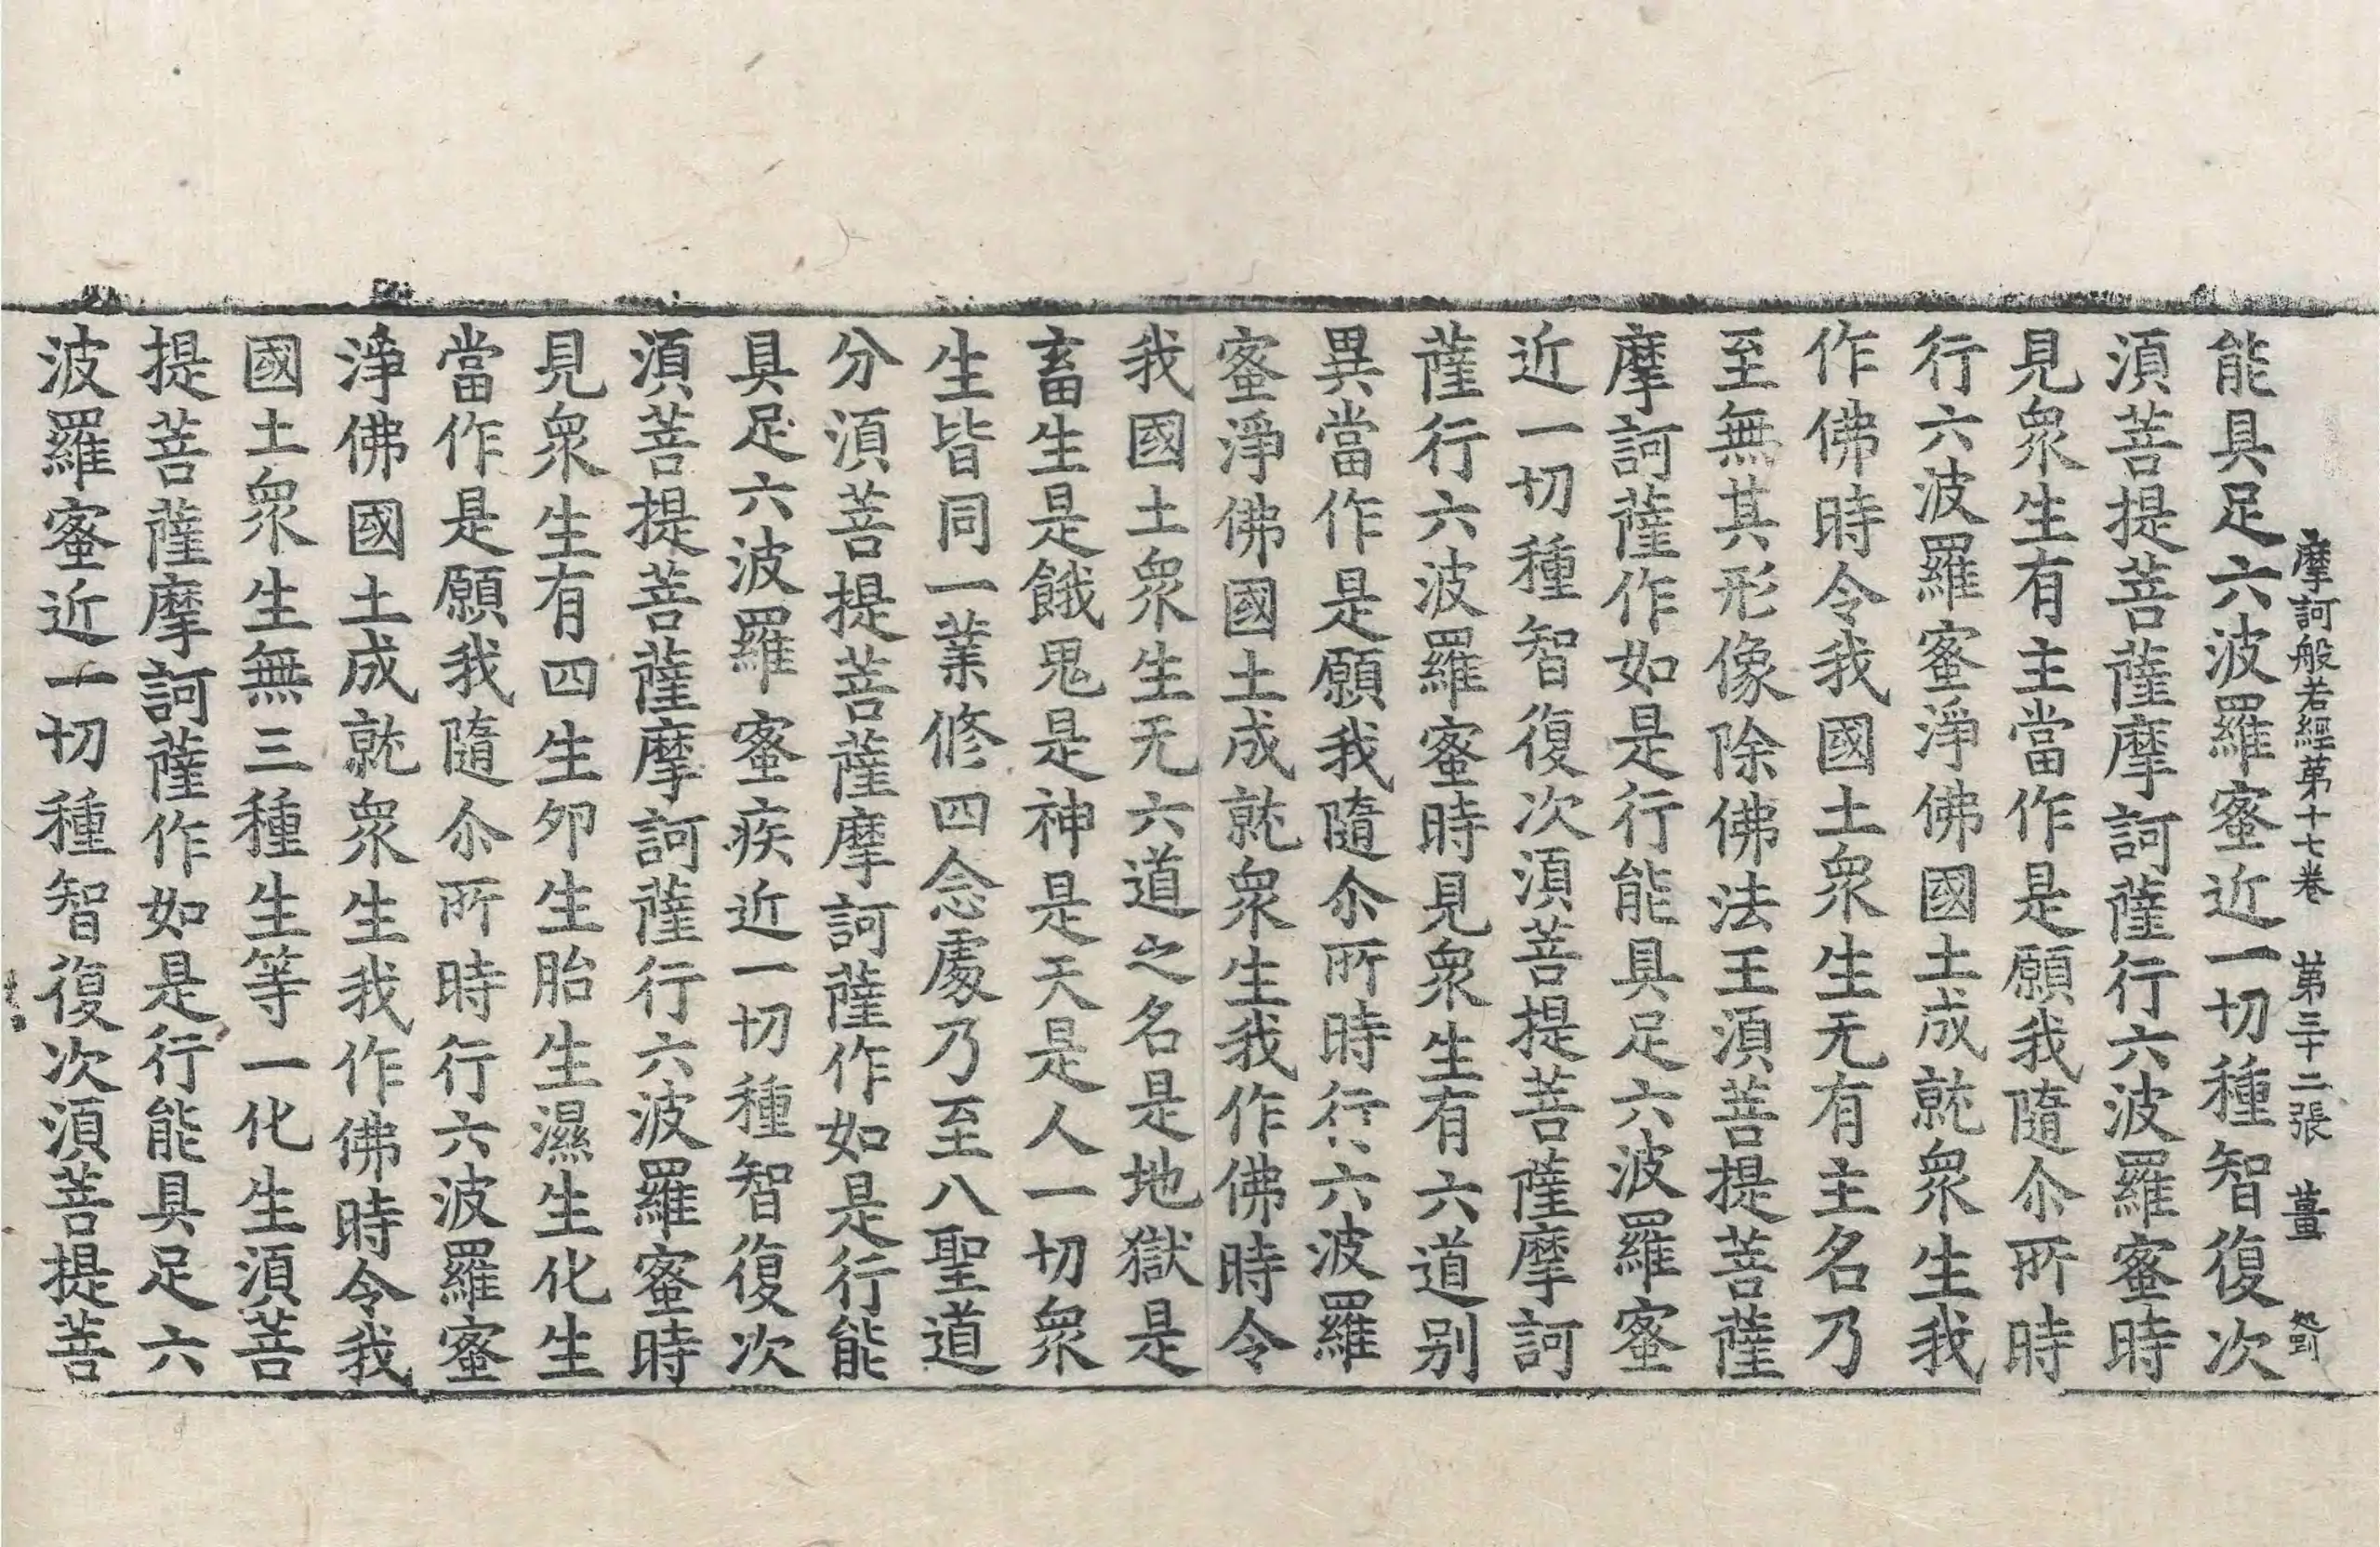 摩訶般若經第十七卷 第三十二張 薑
能具足六波羅蜜近一切種智復次
須菩提菩薩摩訶薩行六波羅蜜時
見衆生有主當作是願我隨尒所時
行六波羅蜜淨佛國土成就衆生我
作佛時令我國土衆生无有主名乃
至無其形像除佛法王須菩提菩薩
摩訶薩作如是行能具足六波羅蜜
近一切種智復次須菩提菩薩摩訶
薩行六波羅蜜時見衆生有六道別
異當作是願我隨尒所時行六波羅
蜜淨佛國土成就衆生我作佛時令
我國土衆生无六道之名是地獄是
畜生是餓鬼是神是天是人一切衆
生皆同一業修四念處乃至八聖道
分須菩提菩薩摩訶薩作如是行能
具足六波羅蜜疾近一切種智復次
須菩提菩薩摩訶薩行六波羅蜜時
見衆生有四生卵生胎生濕生化生
當作是願我隨尒所時行六波羅蜜
淨佛國土成就衆生我作佛時令我
國土衆生無三種生等一化生須菩
提菩薩摩訶薩作如是行能具足六
波羅蜜近一切種智復次須菩提菩